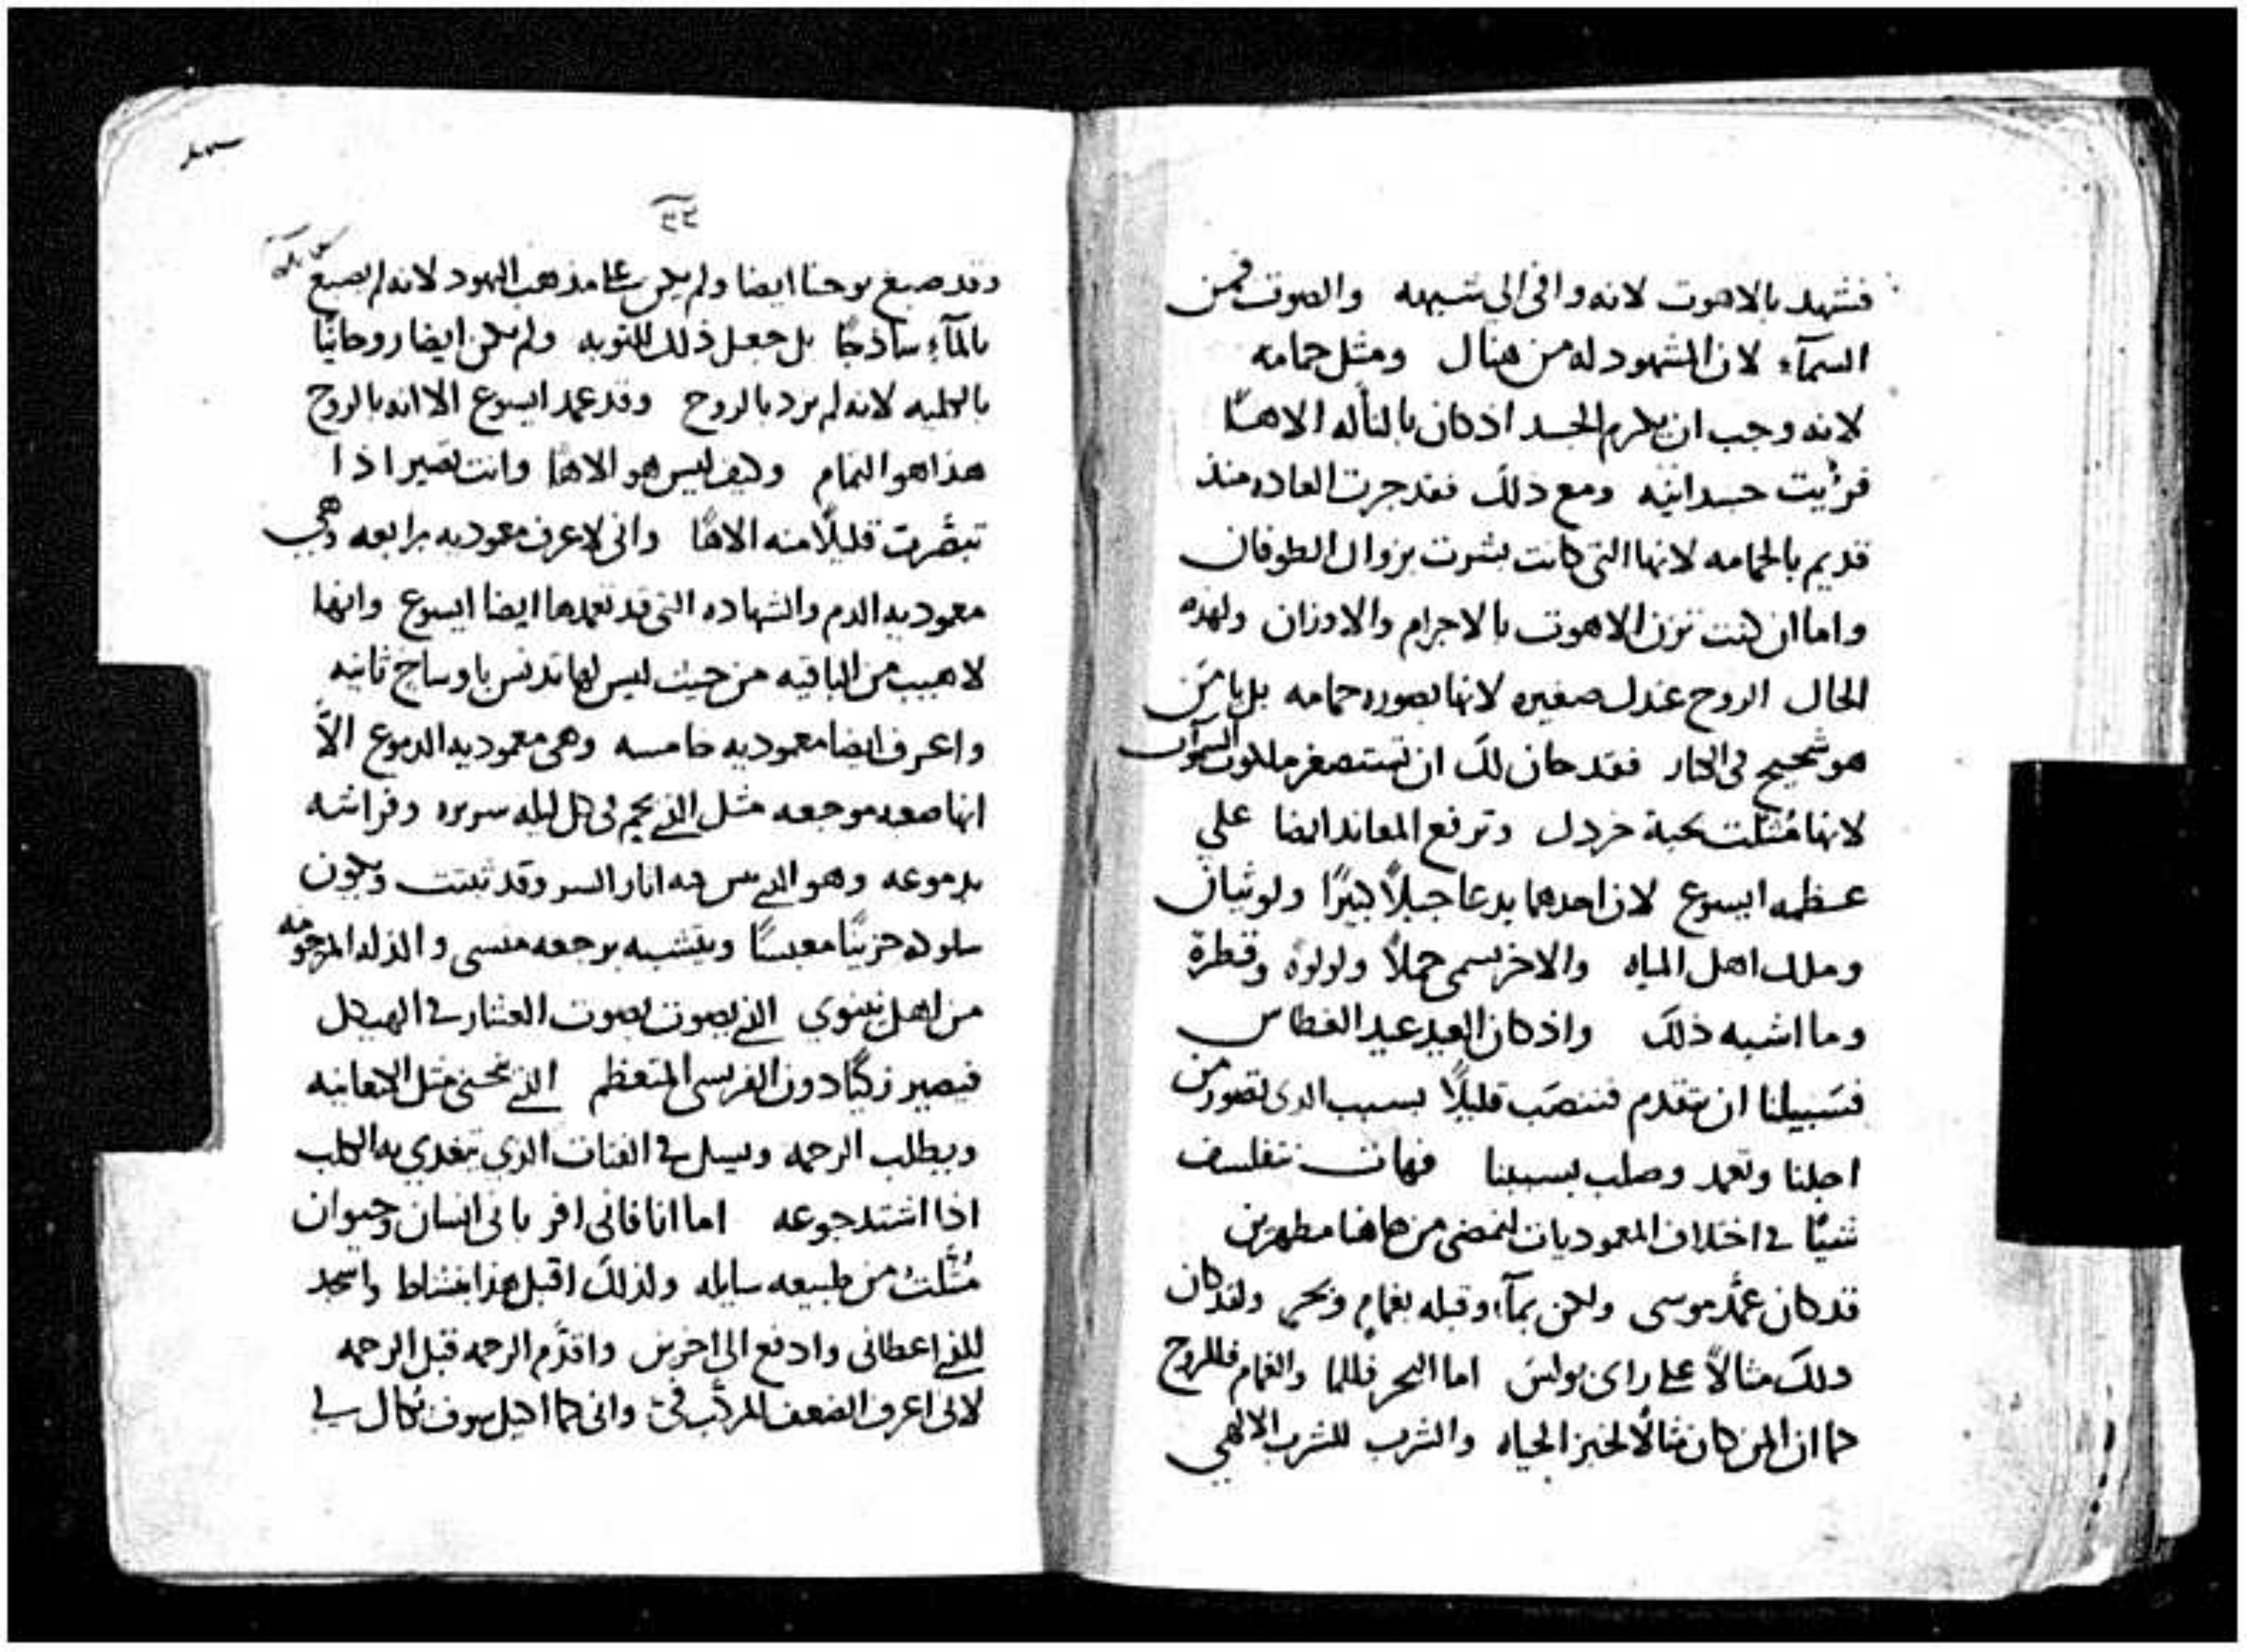 فشهد بالاهوت لانه وافى الى شبيهه والصوت فمن
السمآء لان المشهود له من هناك ومثل حمامه
لانه وجب ان يكرم الجسد اذ كان بالتأله الاهًا
فرُأيت جسدانيه ومع ذلك فقد جرت العاده منذ
قديم بالحمامه لانها التي كانت بشرت بزوال الطوفان
واما ان كنت تزن الاهوت بالاجرام والاوزان ولهذه
الحال الروح عندك صغيره لانها بصوره حمامه بل يا من
هو شحيح في الكبار فقد حان لك ان تستصغر ملكوت السموآت
لانها مُثلت بحبة خردل وترفع المعاند ايضا علي
عظمه ايسوع لان احدهما يدعا جبلاً كبيرًا ولوثيان
وملك اهل المياه والاخر يسمى حملاً ولولوة وقطرة
وما اشبه ذلك واذ كان العيد عيد الغطاس
فسَبيلنا ان نتقدم فننصَب قليلاً بسبب الدى تصور من
اجلنا وتعمد وصلب بسببنا فهات نتفلسف
شيًا في اختلاف المعموديات لنمضي من هاهنا مطهرين
قد كان عمَّد موسى ولكن بمآء وقبله بغمامٍ وبحر ولقد كان
دلك مثالاً على راى بولس اما البحر فللما والغمام فللروح
كما ان المن كان مثالاً لخبز الحياه والشرب للشرب الالهي
٤٣
وقد صبغ يوحنا ايضا ولم يكن على مذهب اليهود لانه لم يصبغ
بالمآءِ ساذجًا بل جعل ذلك للتوبه ولم يكن ايضا روحانيًا
بالكليه لانه لم يزد بالروح وقد عمد ايسوع الا انه بالروح
هذا هو التمام وكيف ليس هو الاهًا وانت تصير اذا
تبصَّرت قليلاً منه الاهًا واني لاعرف معوديه رابعه وهي
معوديه الدم والشهاده التي قد تعمدها ايضا ايسوع وانها
لاهيب من الباقيه من حيث ليس لها تدنس باوساخ ثانيه
واعرف ايضا معموديه خامسه وهي معموديه الدموع الاّ
انها صعبه موجعه مثل الذي يحم في كل ليله سريره وفراشه
بدموعه
سلوكه حزينًا معبسًا ويتشبه برجعه منسى والذله المرحومه
من اهل نينوي الذي يصوت بصوت العشار في الهيكل
فيصير زكيًا دون الفريسي المتعظم الذي تنحني مثل الكنعانيه
ويطلب الرحمه ويسل في الفتات الذي تتغدي به الكلب
اذا اشتد جوعه اما انا فاني اقر باني انسان وحيوان
مُثَّلتُ من طبيعه سايله ولذلك اقبل هذا بنشاط واسجد
للذي اعطاني وادفع الى اخرين واقدَّم الرحمه قبل الرحمه
لاني اعرف الضعف المركَّب فيّ واني كما اكيل سوف يُكال لي